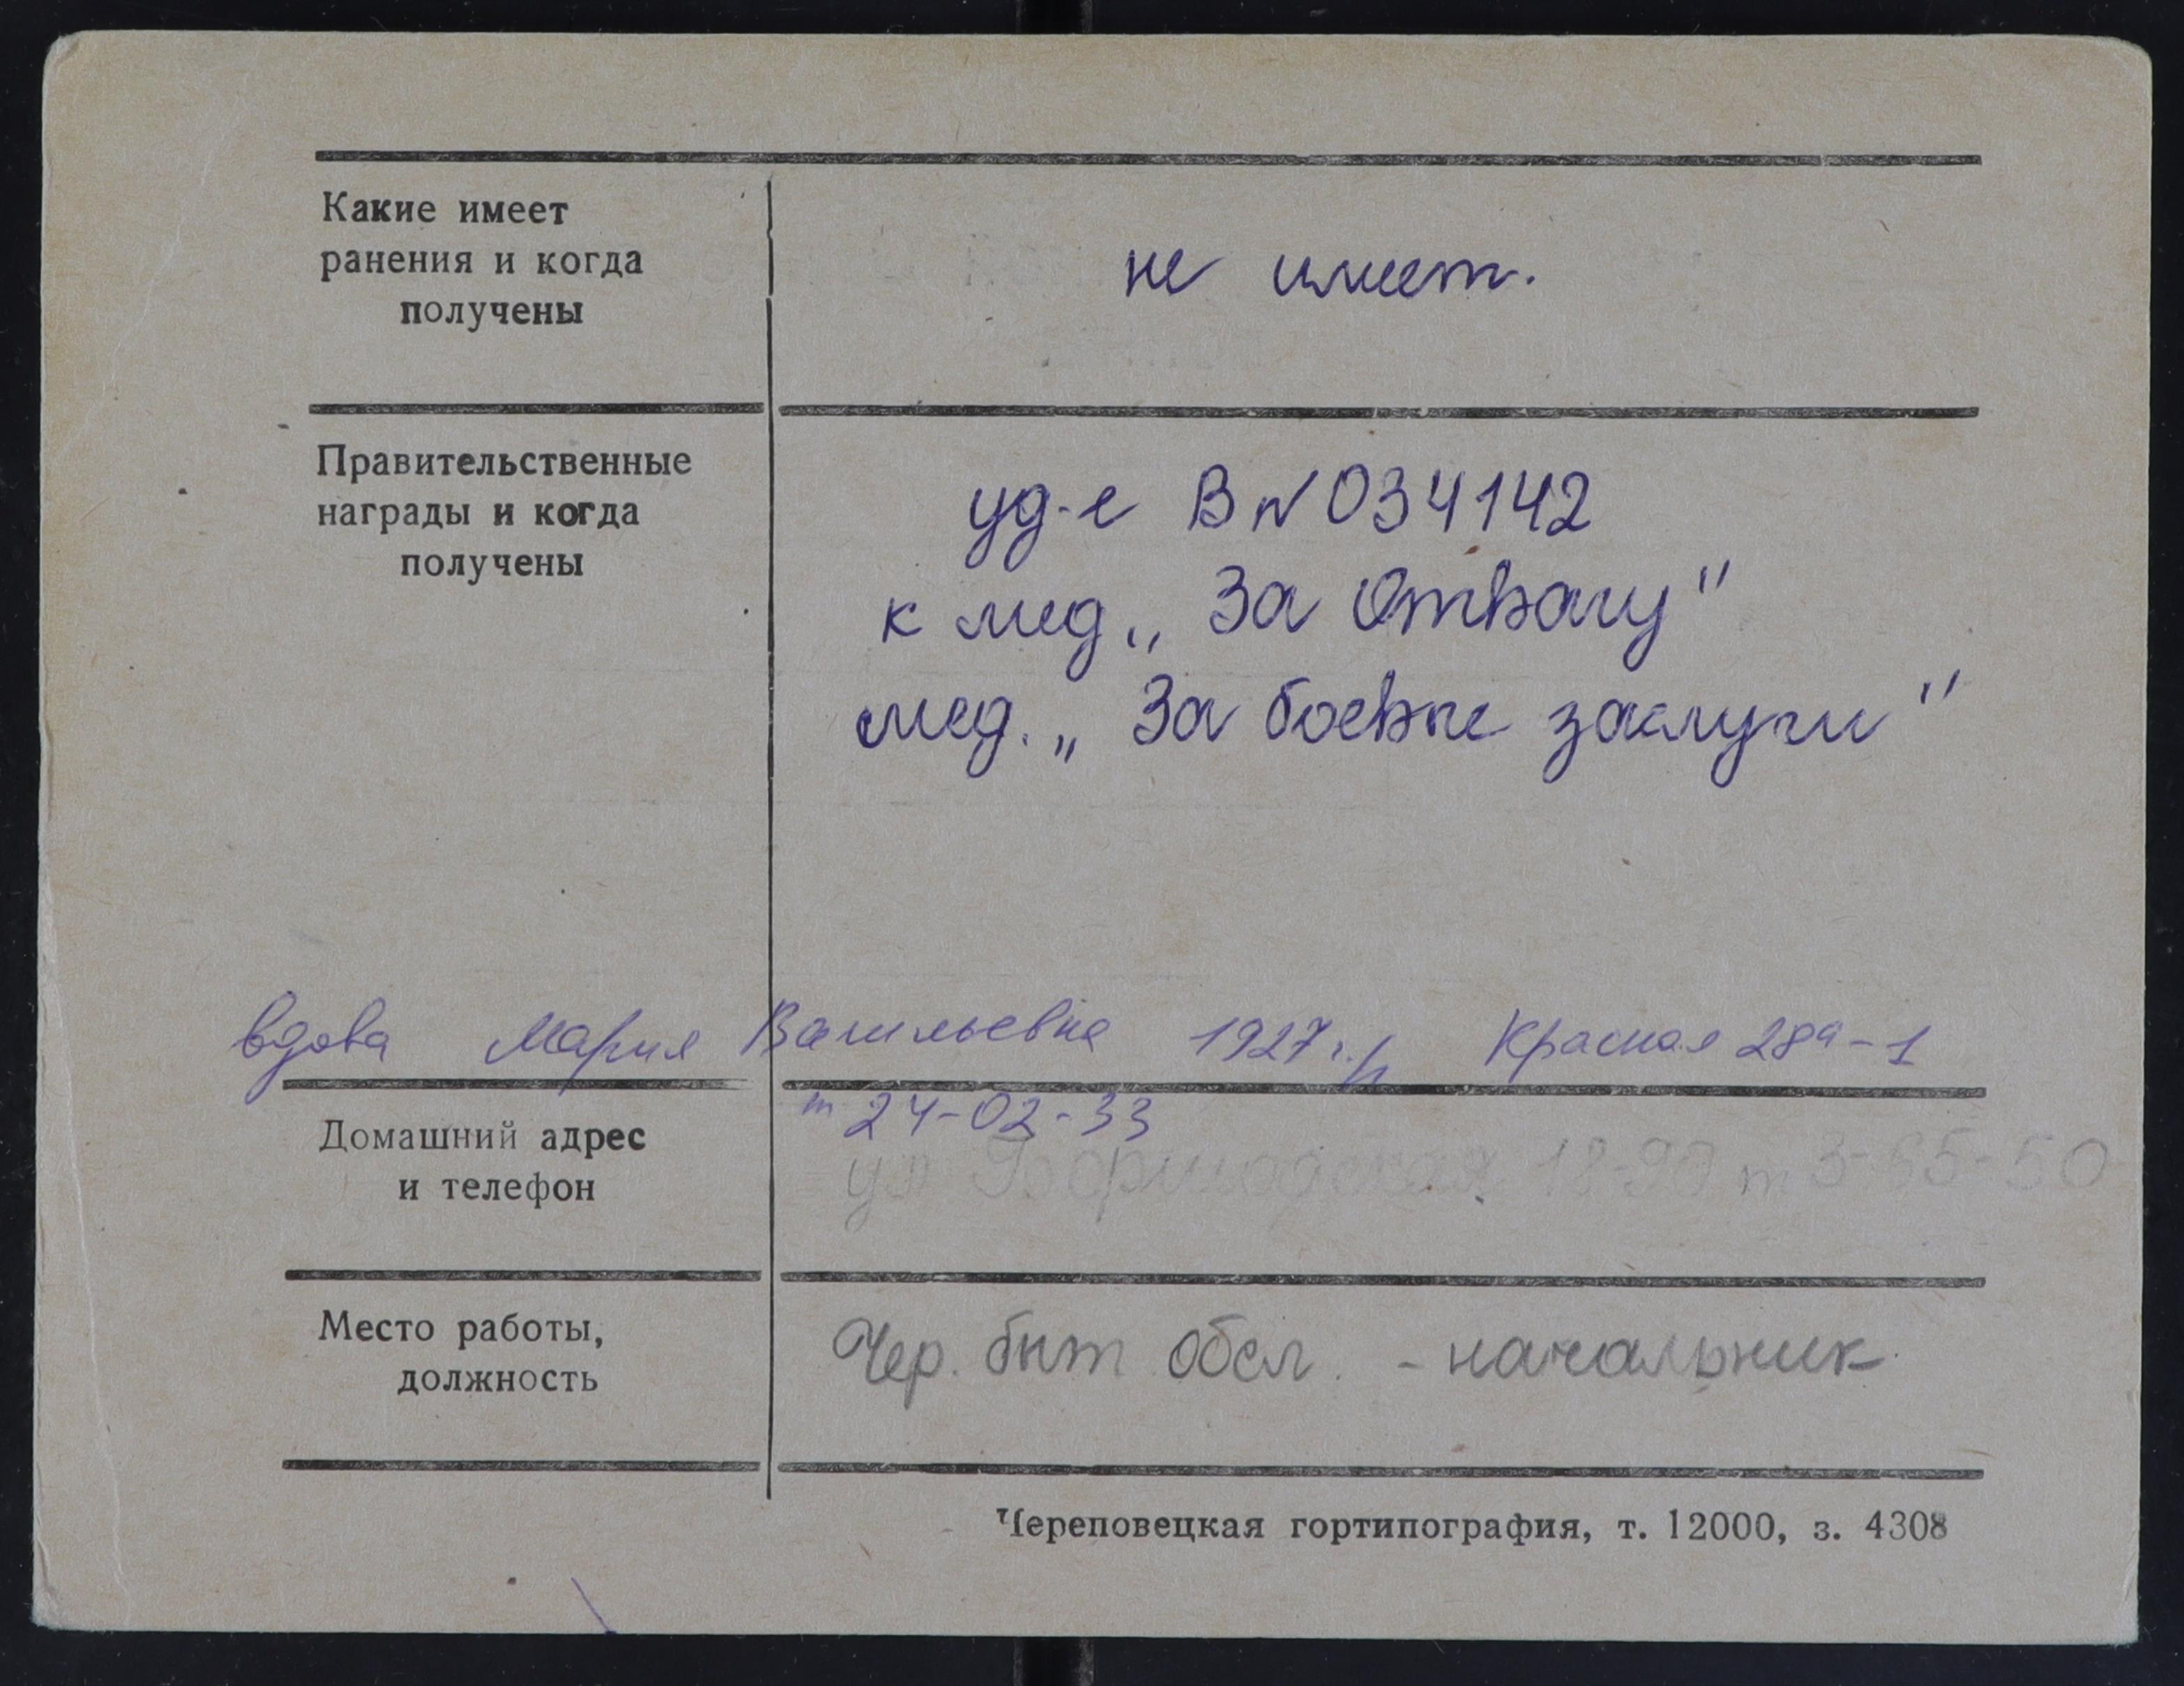 Какие имеет
ранения и когда
получены
не имеет.
Правительственные
награды и когда
получены
уд-е В № 034142
к мед „За Отвагу"
мед. „За боевые заслуги"
вдова Мария Васильевна 1927 г./р Красная 28а-1
т 24-02-33
Домашний адрес
и телефон
ул
Место работы,
должность
Чер. быт обсл. - начальник
Череповецкая гортипография, т. 12000, з. 4308